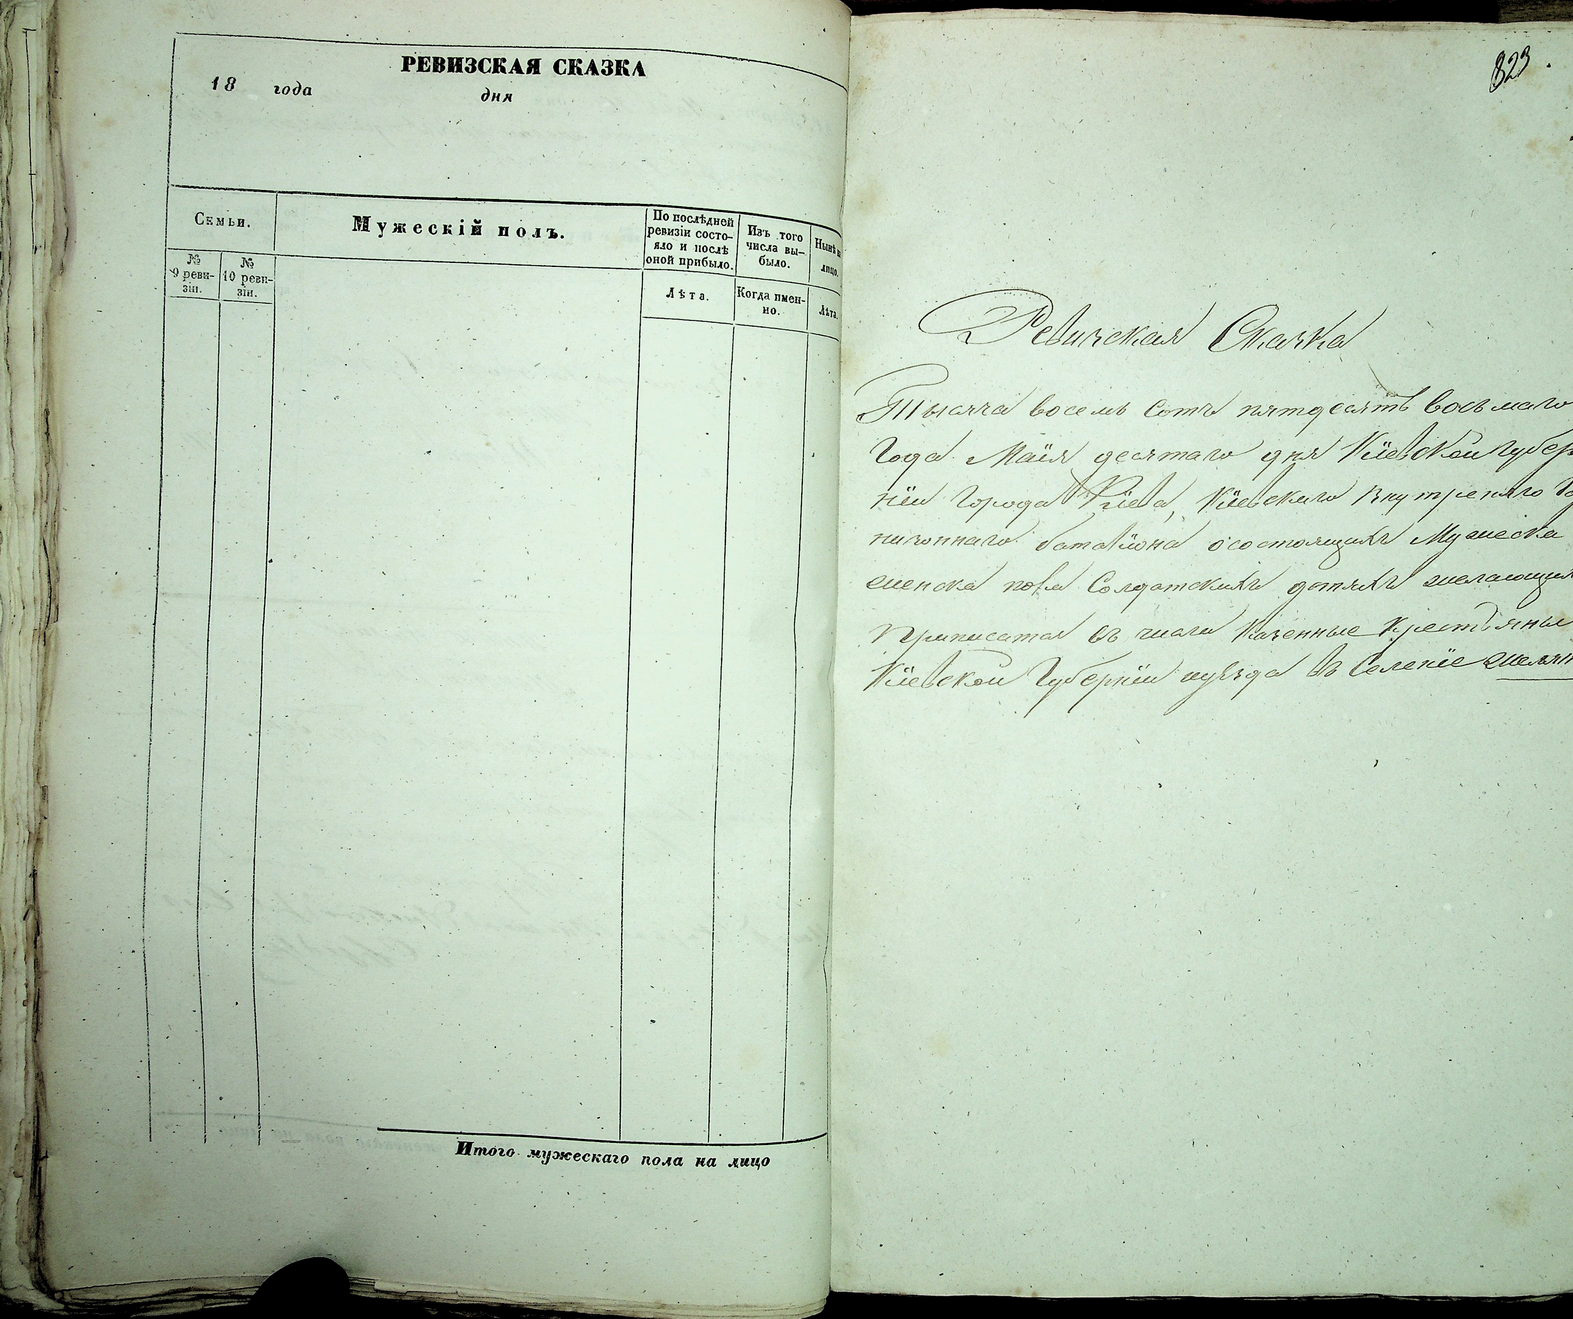 РЕВИЗСКАЯ СКАЗКА
18 года дня
Семьи.
Мужескій полъ.
По послѣдней
ревизіи состо-
яло и послѣ
оной прибыло.
Изъ того
числа вы-
было.
Нынѣ
лицо.
№
9 реви-
зіи.
№
10 реви-
зіи.
Лѣта.
Когда имен-
но.
Лѣта.
Итого мужескаго пола на лицо
823.
Ревизская Сказка
Тысяча восемь сотъ пятдесятъ восьмаго
Года Маія десятаго дня Кіевской губер
ніи города Кіева, Кіевскаго Внутреняго Га
низоннаго баталіона о состоящихъ Мужеска
женска пола Солдатскихъ дѣтяхъ желающих
приписатся въ число Казенные Крестьяные
Кіевской Губерніи уѣзда въ Селеніе